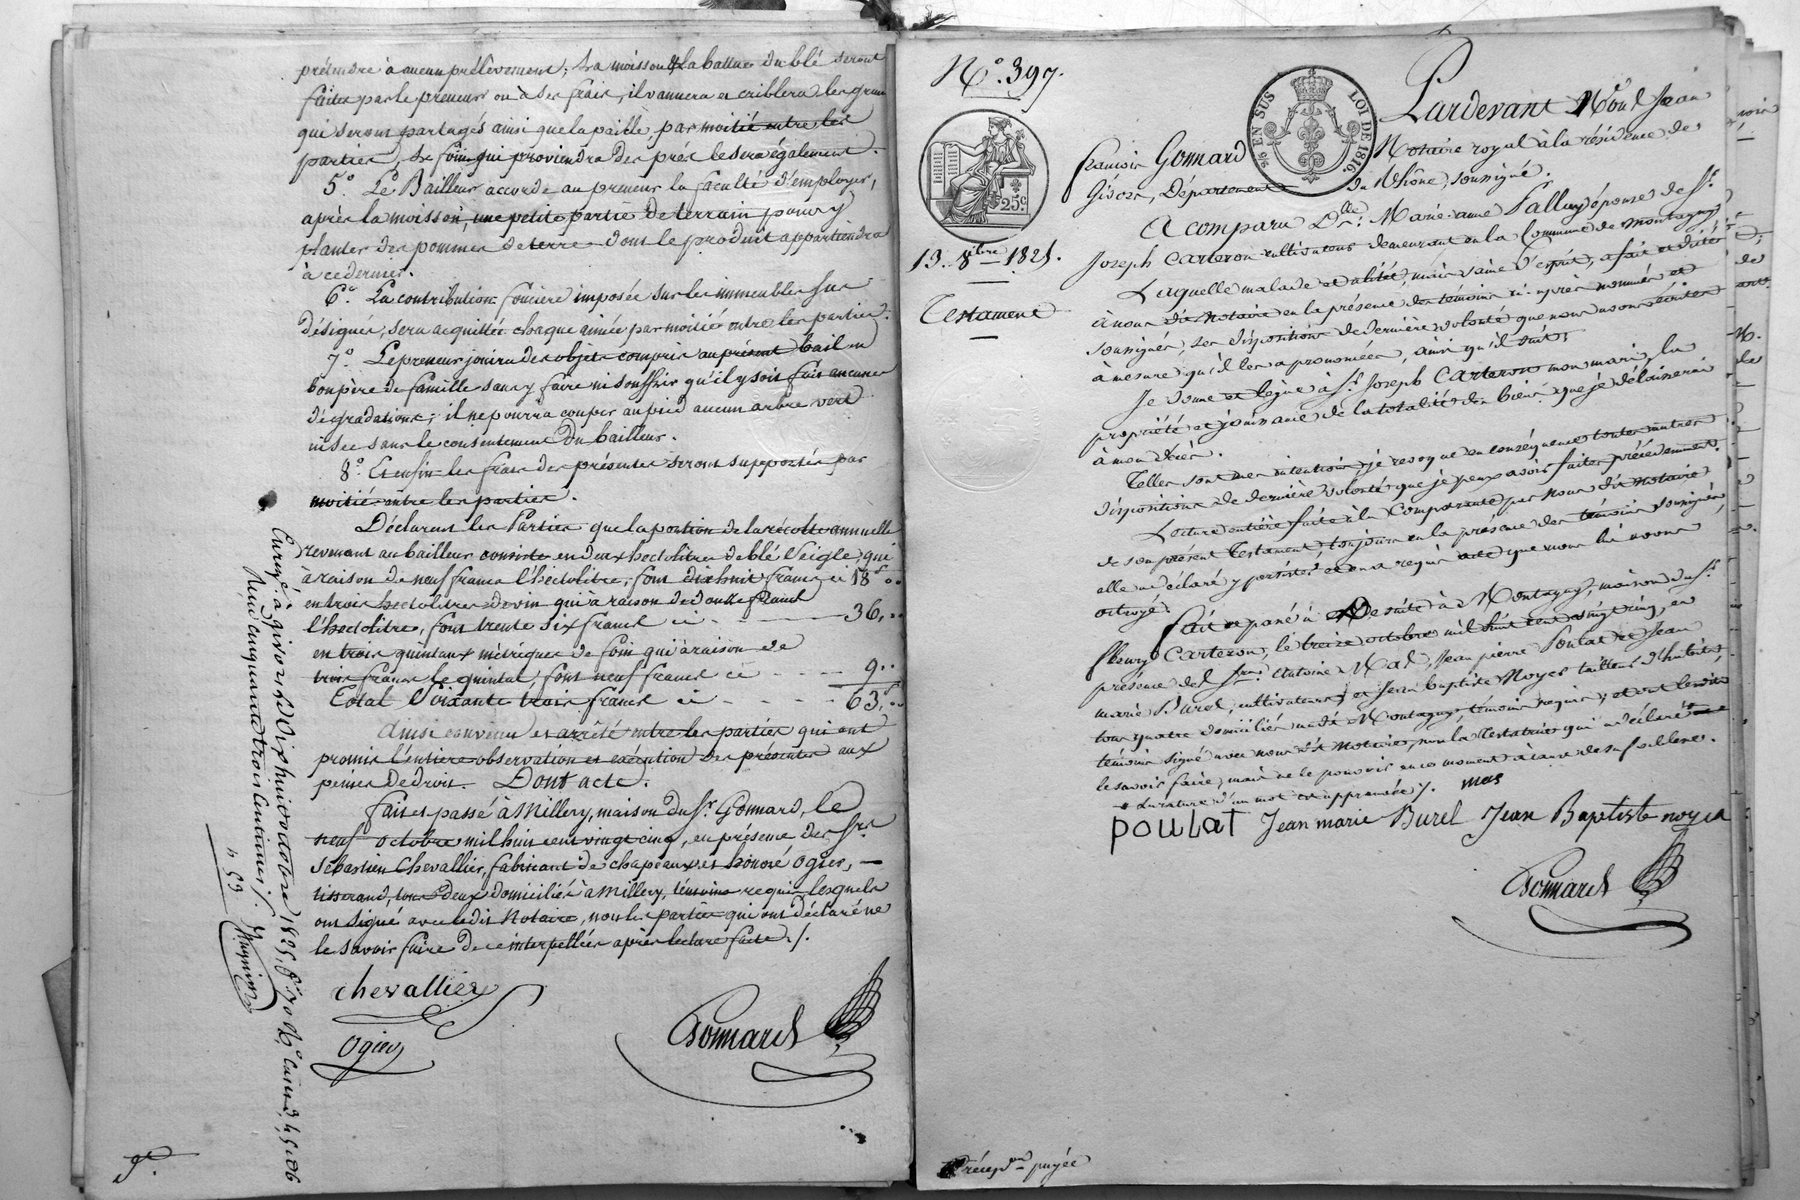 prétendre à aucun prélèvement; La moisson & la battue du blé seront
faites par le preneur ou à ses frais, il vannera et criblera les grains
qui seront partagés ainsi que la paille, par moitié entre les
parties, Le foin qui proviendra des prés le sera également.
5º. Le Bailleur accorde au preneur la faculté d'employer,
après la moisson, une petite partie de terrain pour y
planter des pommes de terre dont le produit appartiendra
à ce dernier.
6º. La contribution foncière imposée sur les immeubles sus
désignés, sera acquittée chaque année par moitié entre les parties.
7º. Le preneur jouira des objets compris au présent bail en
bon père de famille sans y faire ni souffrir qu'il y soit fait aucunes
dégradations; il ne pourra couper au pied aucun arbre vert
ni sec sans le consentement du bailleur.
8º. Et enfin les frais des présentes seront supportés par
moitié entre les parties.
Déclarent les Parties que la portion de la récolte annuelle
revenant au bailleur consiste en deux hectolitres de blé Seigle, qui
à raison de neuf francs l'hectolitre, font dix huit francs ci 18f ..
en trois hectolitres de vin qui à raison de douze francs
l'hectolitre, font trente six francs ci - - - 36, ..
en trois quintaux métriques de foin qui à raison de
trois francs le quintal, font neuf francs ci - - - 9 ..
Total Soixante trois francs ci - - - - 63f ..
Ainsi convenu et arrêté entre les parties qui ont
promis l'entière observation et exécution des présentes aux
peines de droit. Dont acte.
Fait et passé à Millery, maison du Sr Gonnard, le
neuf octobre mil huit cent vingt cinq, en présence des Srs
Sébastien Chevallier, fabricant de chapeaux et honoré Ogier,
tisserand, tous deux domiciliés à Millery, témoins requis lesquels
ont signé avec ledit Notaire, non les parties qui ont déclaré ne
le savoir faire de ce interpellées après lecture faite ./.
Chevallier
Ogier
Gonnard
Enregé à givors le Dix huit octobre 1825, fo 70
Reçu cinquante trois centimes
" 53
Nº. 397.
% EN SUS LOI DE 1816.
25c
13. 8bre 1825.
Testament
Pardevant Nous Jean
françois Gonnard Notaire royal à la résidence de
Givors, Département du Rhône, soussigné.
A comparu De. Marie anne Palluy épouse de Sr.
Joseph Carteron cultivateur demeurant en la Commune de montagny
Laquelle malade et alitée, mais saine d'esprit, a fait et dicté
à nous dit Notaire en la présence des témoins ci-après nommés et
soussignés, ses dispositions de dernière volonté que nous avons écrites
à mesure qu'il les a prononcées, ainsi qu'il suit:
Je donne et lègue à Sr. Joseph Carteron mon mari, la
propriété et jouissance de la totalité des biens que je délaisserai
à mon décès.
Telles sont mes intentions, je révoque en conséquence toutes autres
dispositions de dernière volonté que je peux avoir faites précédemment.
Lecture entière faite à la Comparante par nous dit notaire
de son présent Testament, toujours en la présence des témoins soussignés,
elle a déclaré y persister et en a requis acte que nous lui avons
octroyé.
Fait et passé de suite à Montagny, maison du Sr.
fleury Carteron, le treize octobre mil huit cent vingt cinq, en
présence des Srs Antoine Mas, Jean pierre Poulat et Jean
marie Burel, cultivateurs, et Jean baptiste Noyer tailleur d'habits,
tous quatre domiciliés audit Montagny, témoins requis, et ont lesdits
témoins signé avec nous dit Notaire, non la Testatrice qui a déclaré
le savoir faire, mais ne le pouvoir en ce moment à cause de sa faiblesse.
+ La rature d'un mot est approuvée ./. mas
POULAT Jean marie Burel Jean Baptiste noyer
Gonnard
payée